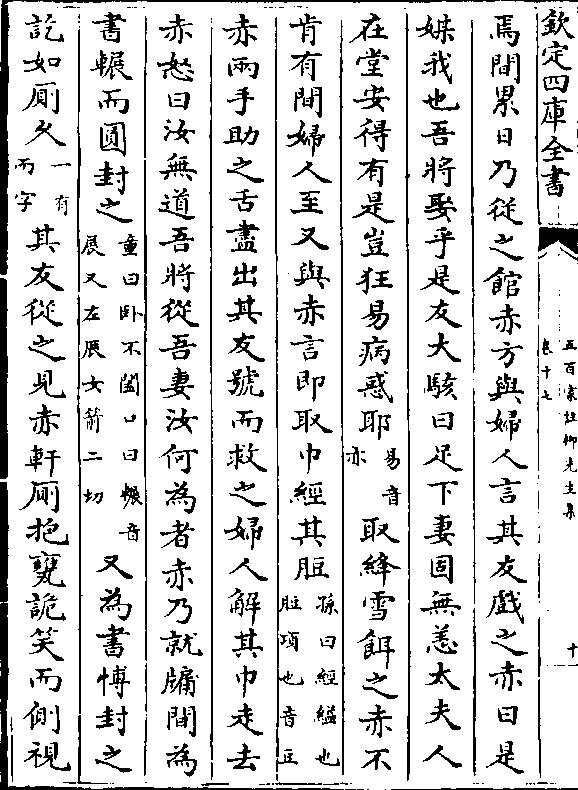 欽定四庫全書
五百家註柳先生集
卷十七
十
焉間累日乃從之館赤方與婦人言其友戲之赤曰是
媒我也吾將娶乎是友大駭曰足下妻固無恙太夫人
在堂安得有是豈狂易病惑耶易音亦取絳雪餌之赤不
肯有間婦人至又與赤言即取巾經其脰孫曰經縊也脰項也音豆
赤兩手助之舌盡出其友號而救之婦人解其巾走去
赤怒曰汝無道吾將從吾妻汝何為者赤乃就牖間為
書輾而圓封之童曰卧不闔口曰輾音展又左展女箭二切又為書博封之
訖如厠久一有而字其友從之見赤軒厠抱甕詭笑而側視